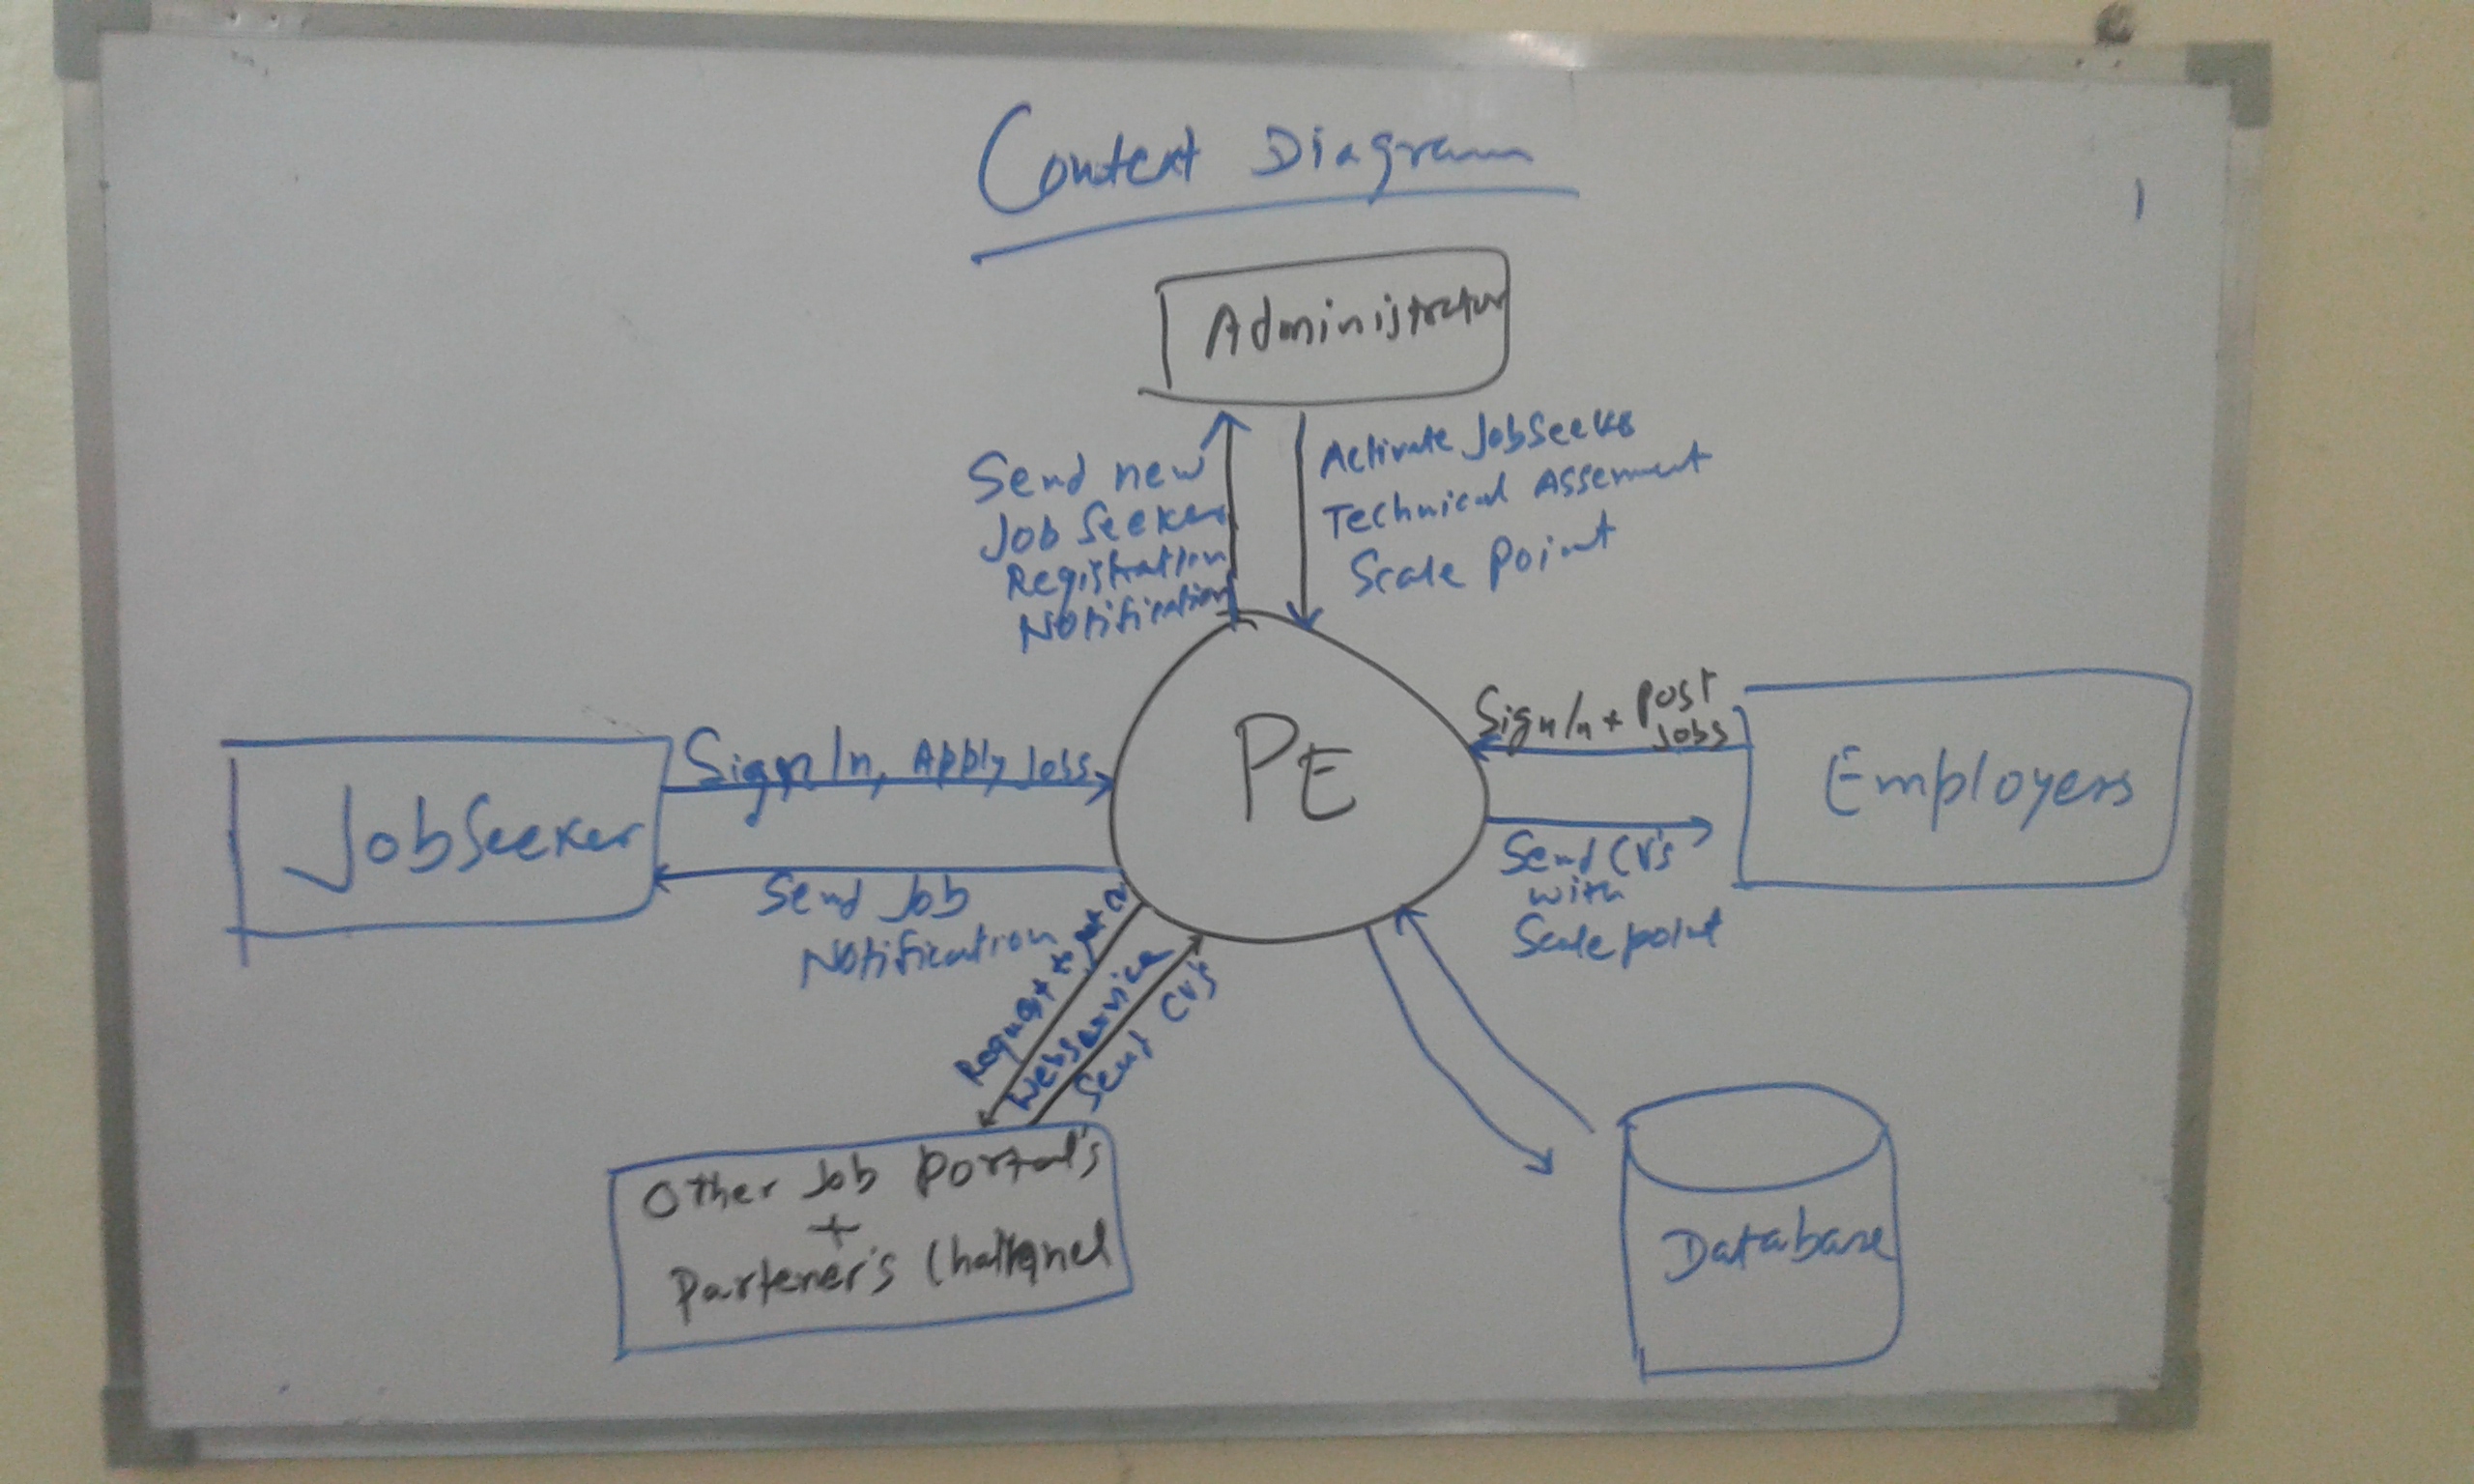 Context Diagram
1
Administrator
Send new
Job Seeker
Registration
Notification
Activate JobSeeker
Technical Assement
Scale Point
PE
JobSeeker
Sign In, Apply Jobs
Send Job
Notification
Sign In + Post
Jobs
Employers
Send CV's
with
Scale point
Request
Webservice
Send CV's
Other Job Portal's
+
Partener's Channel
Database